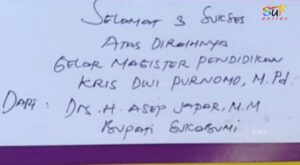 SELAMAT & SUKSES
ATAS DIRAIHNYA
GELAR MAGISTER PENDIDIKAN
KRIS DWI PURNOMO, M.Pd
DARI : Drs. H. ASEP JAPAR, M.M
BUPATI SUKABUMI